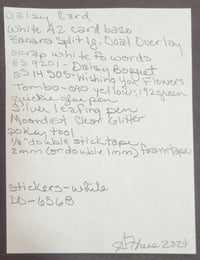 Daisy Card
White A2 card base
Banana Split lg. Oval Overlay
scrap white fo words
ES 9201 - Daisy Boquet
ES 14505 - Wishing you Flowers
Tombo - 090 yellow, 192 green
quickie glue pen
Silver leafing pen
Moondust Clear Glitter
pokey tool
1/8" double stick tape
2mm (or double 1mm) foam tape
stickers - white
DD - 6568
2024